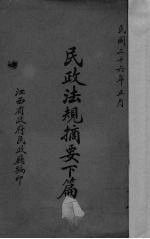 民國三十六年五月
民政法規摘要下篇
江西省政府民政廳編印